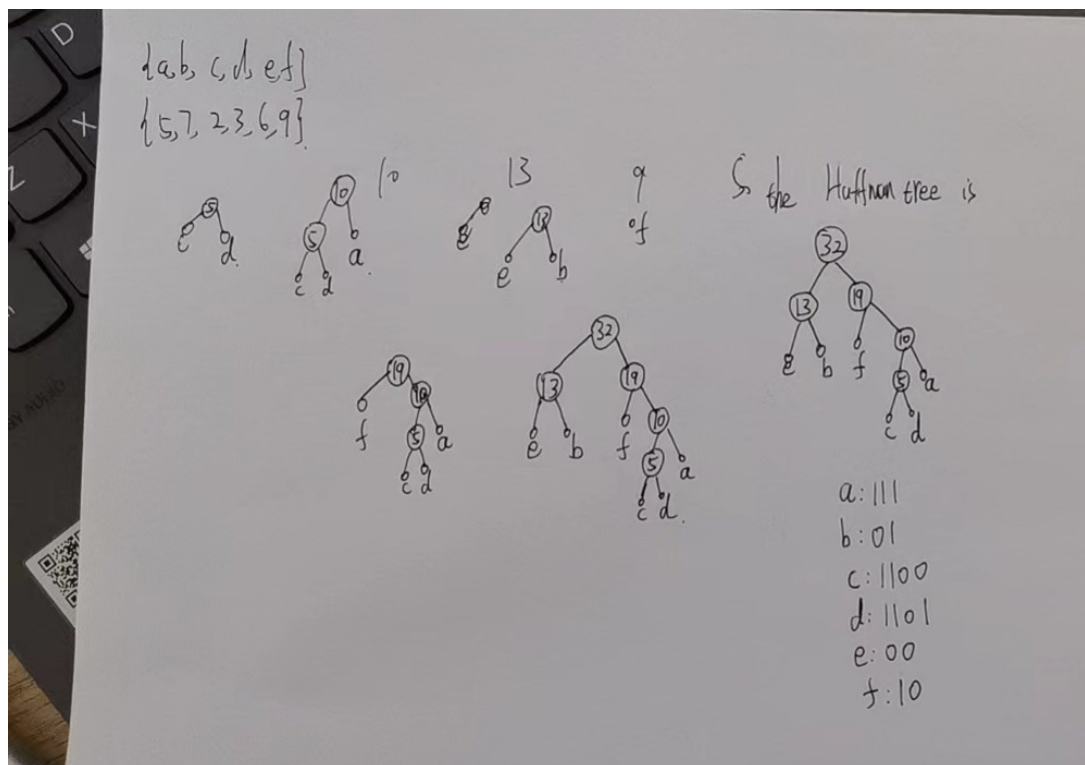 {a,b, c,d, e,f}
{5,7, 2,3,6,9}.
5
c d.
10 10
5 a.
c d
13
13
e b
9
f
So the Huffman tree is
32
13 19
e b f 10
5 a
c d
19
f 10
5 a
c d
32
13 19
e b f 10
5 a
c d.
a:111
b:01
c:1100
d:1101
e:00
f:10
D
X
Z